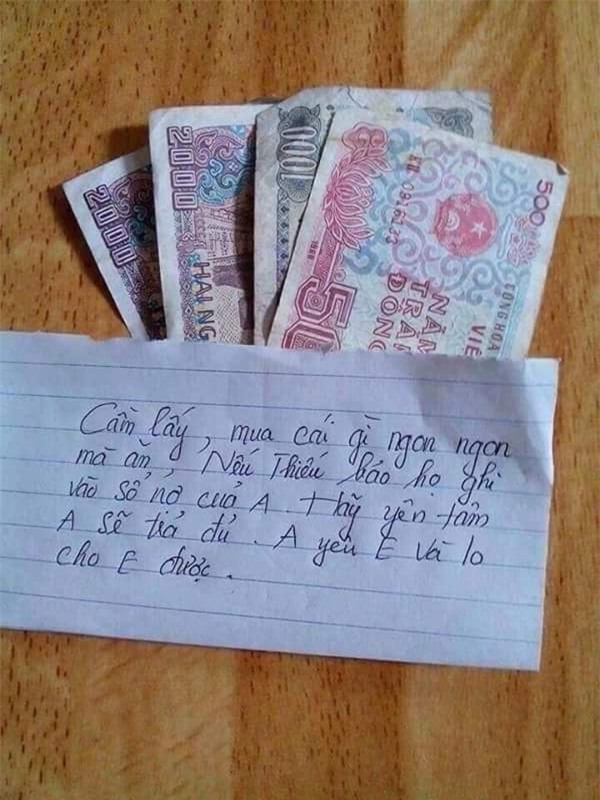 2000
2000
HAI NG
1000
500
KU 0961233
CỘNG HÒA
VIỆ
NĂM
TRĂ
ĐỒN
1988
50
Cầm lấy, mua cái gì ngon ngon
mà ăn, Nếu Thiếu báo họ ghi
vào sổ nợ của A. Hãy yên tâm
A sẽ trả đủ. A yêu E và lo
cho E được.